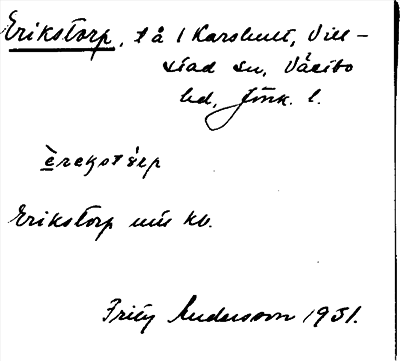 Erikstorp, t å 1 Karshult, Vill-
stad sn, Västbo
hd, Jönk. l.
èrekstórp
Erikstorp uu kb.
Frity Andersson 1931.